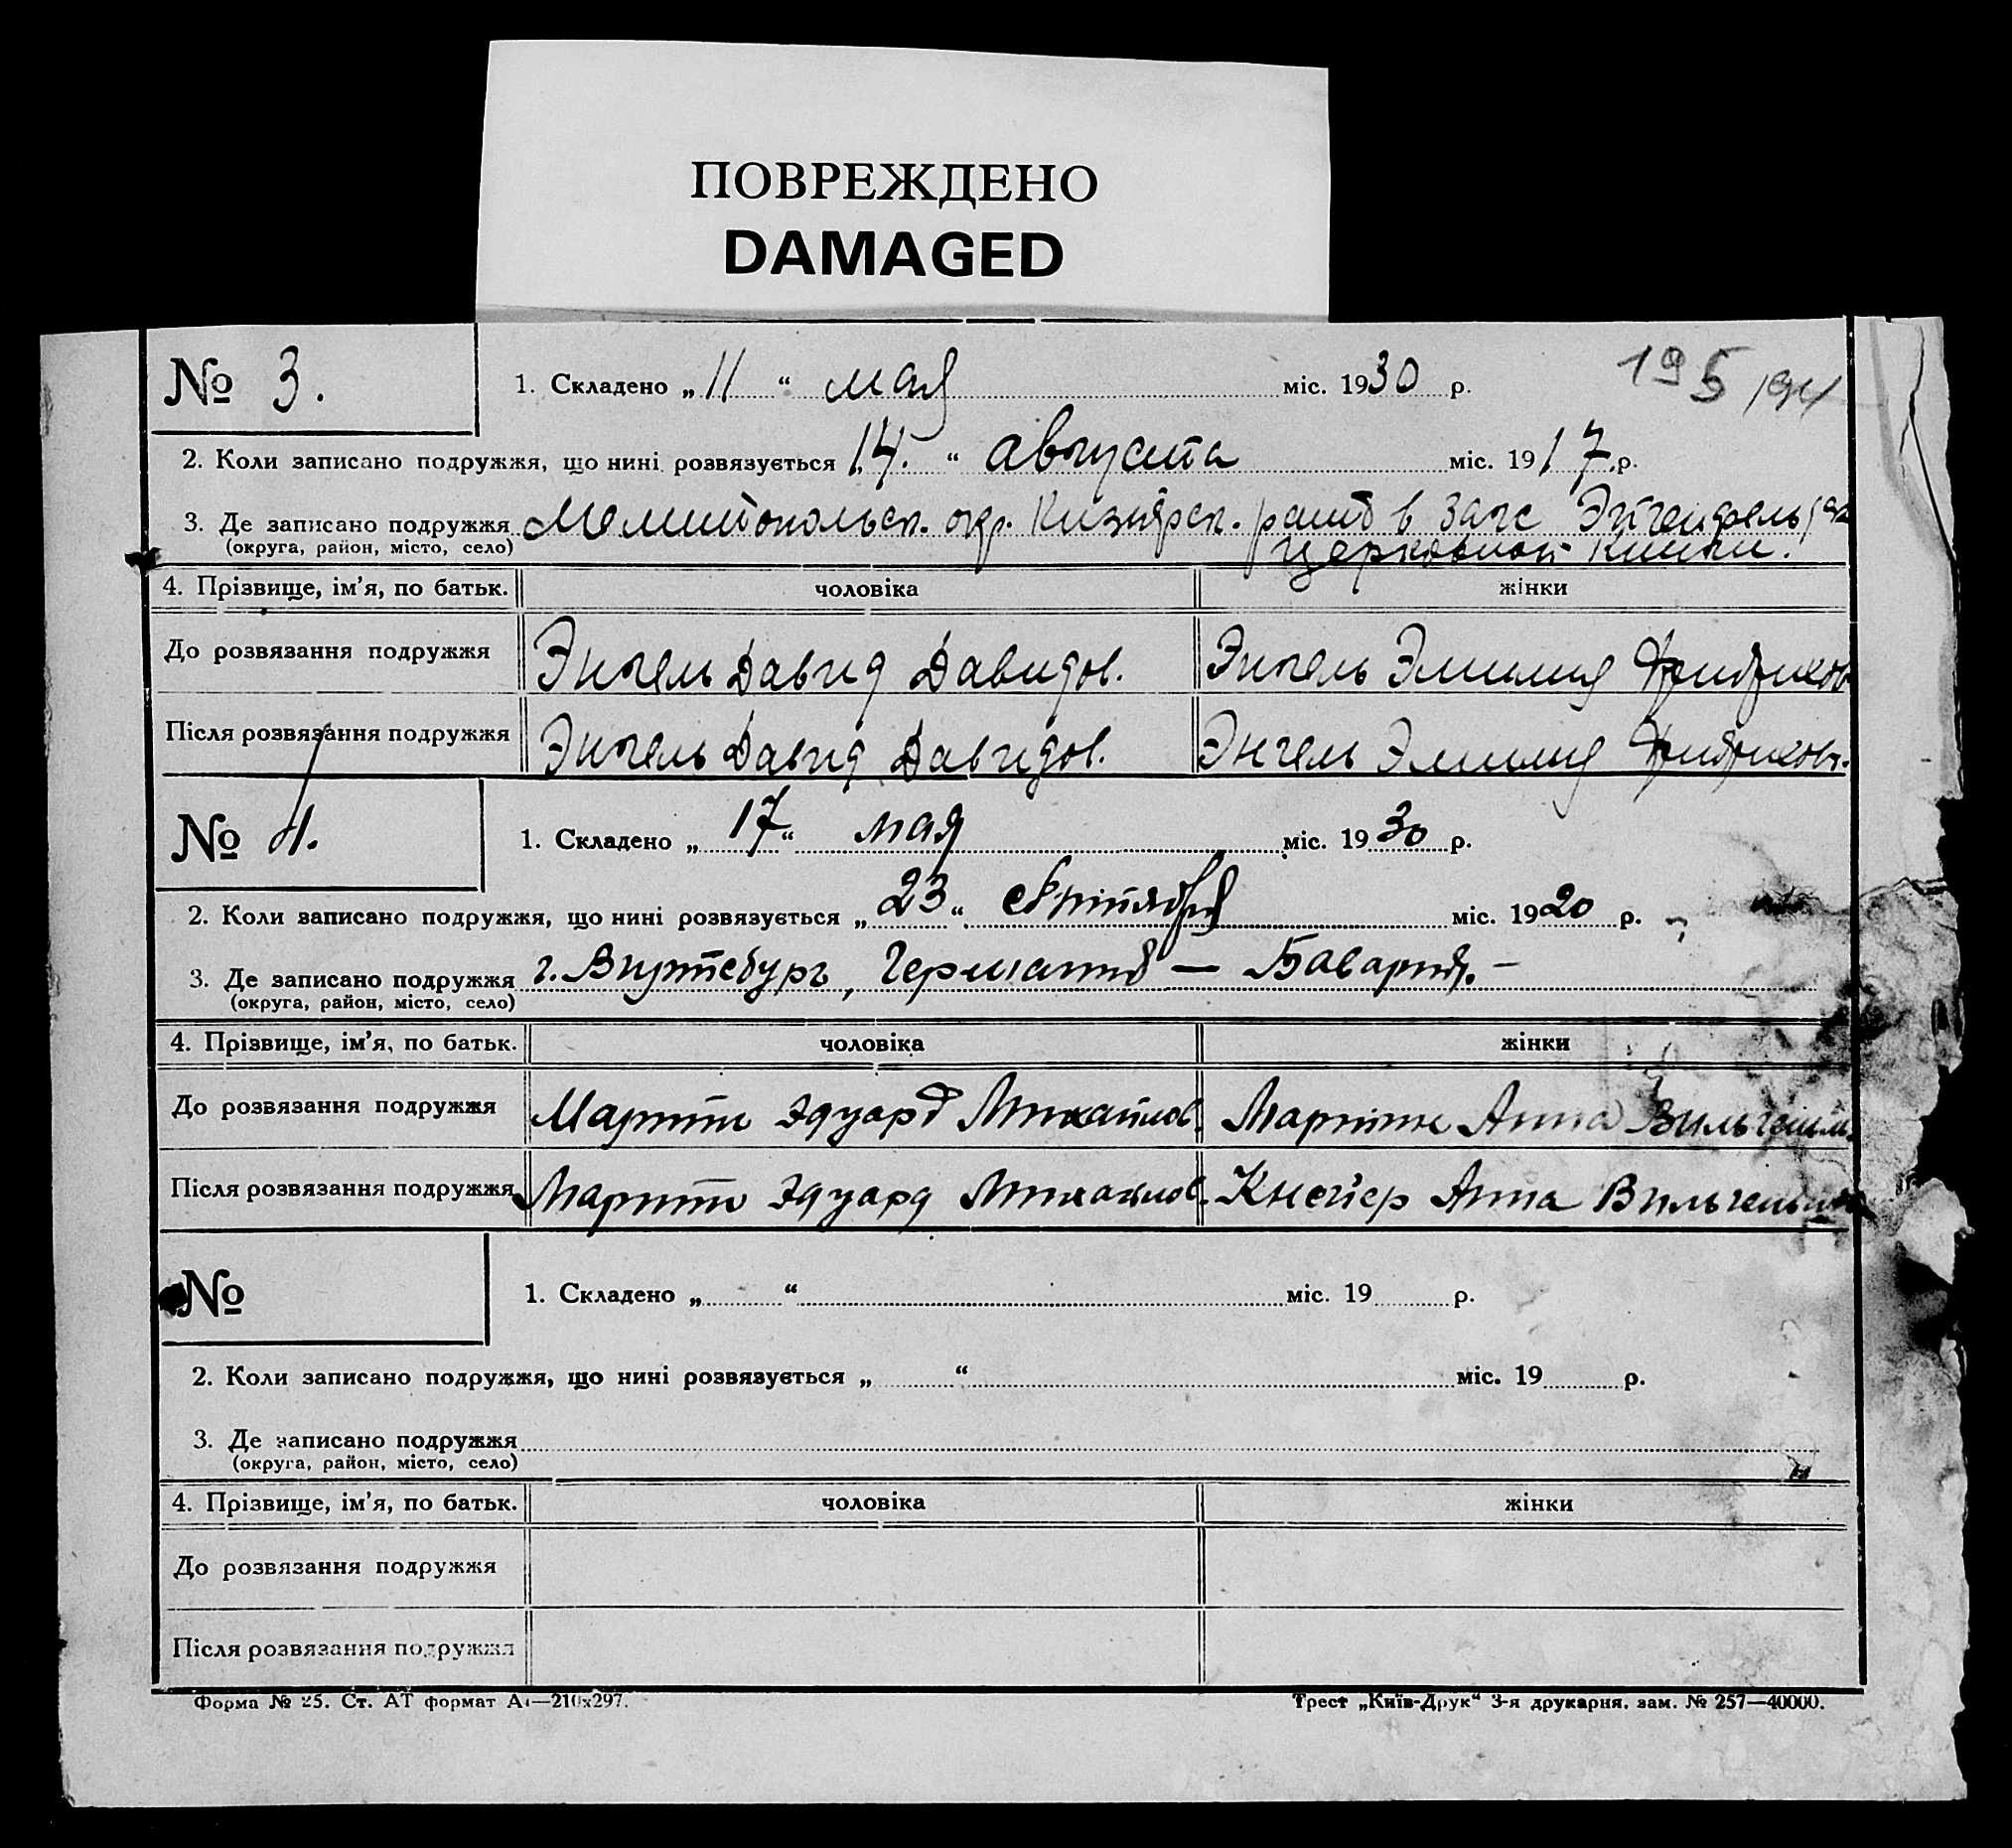 ПОВРЕЖДЕНО
DAMAGED
№ 3.
1. Складено „ 11 “ мая міс. 1930 р.
195 194
2. Коли записано подружжя, що нині розвязується 14. “ августа міс. 1917 р.
3. Де записано подружжя Мелитопольск. окр. в Загс
(округа, район, місто, село) церковной книги.
4. Прізвище, ім’я, по батьк. чоловіка жінки
До розвязання подружжя Энгель Давид Давидов. Энгель Эмилия Фридрихов
Після розвязання подружжя Энгель Давид Давидов. Энгель Эмилия Фридрихов.
№ 4.
1. Складено „ 17 “ мая міс. 1930 р.
2. Коли записано подружжя, що нині розвязується „ 23 “ сентября міс. 1920 р.
3. Де записано подружжя г. Виртебург, Германия — Бавария. —
(округа, район, місто, село)
4. Прізвище, ім’я, по батьк. чоловіка жінки
До розвязання подружжя Мартин Эдуард Михайлов. Мартин Анна Вильгельм.
Після розвязання подружжя Мартин Эдуард Михайлов. Кнейер Анна Вильгельм
№
1. Складено „ “ міс. 19 р.
2. Коли записано подружжя, що нині розвязується „ “ міс. 19 р.
3. Де записано подружжя
(округа, район, місто, село)
4. Прізвище, ім’я, по батьк. чоловіка жінки
До розвязання подружжя
Після розвязання подружжя
Форма № 25. Ст. АТ формат А4—210х297. Трест „Київ-Друк“ 3-я друкарня. зам. № 257—40000.